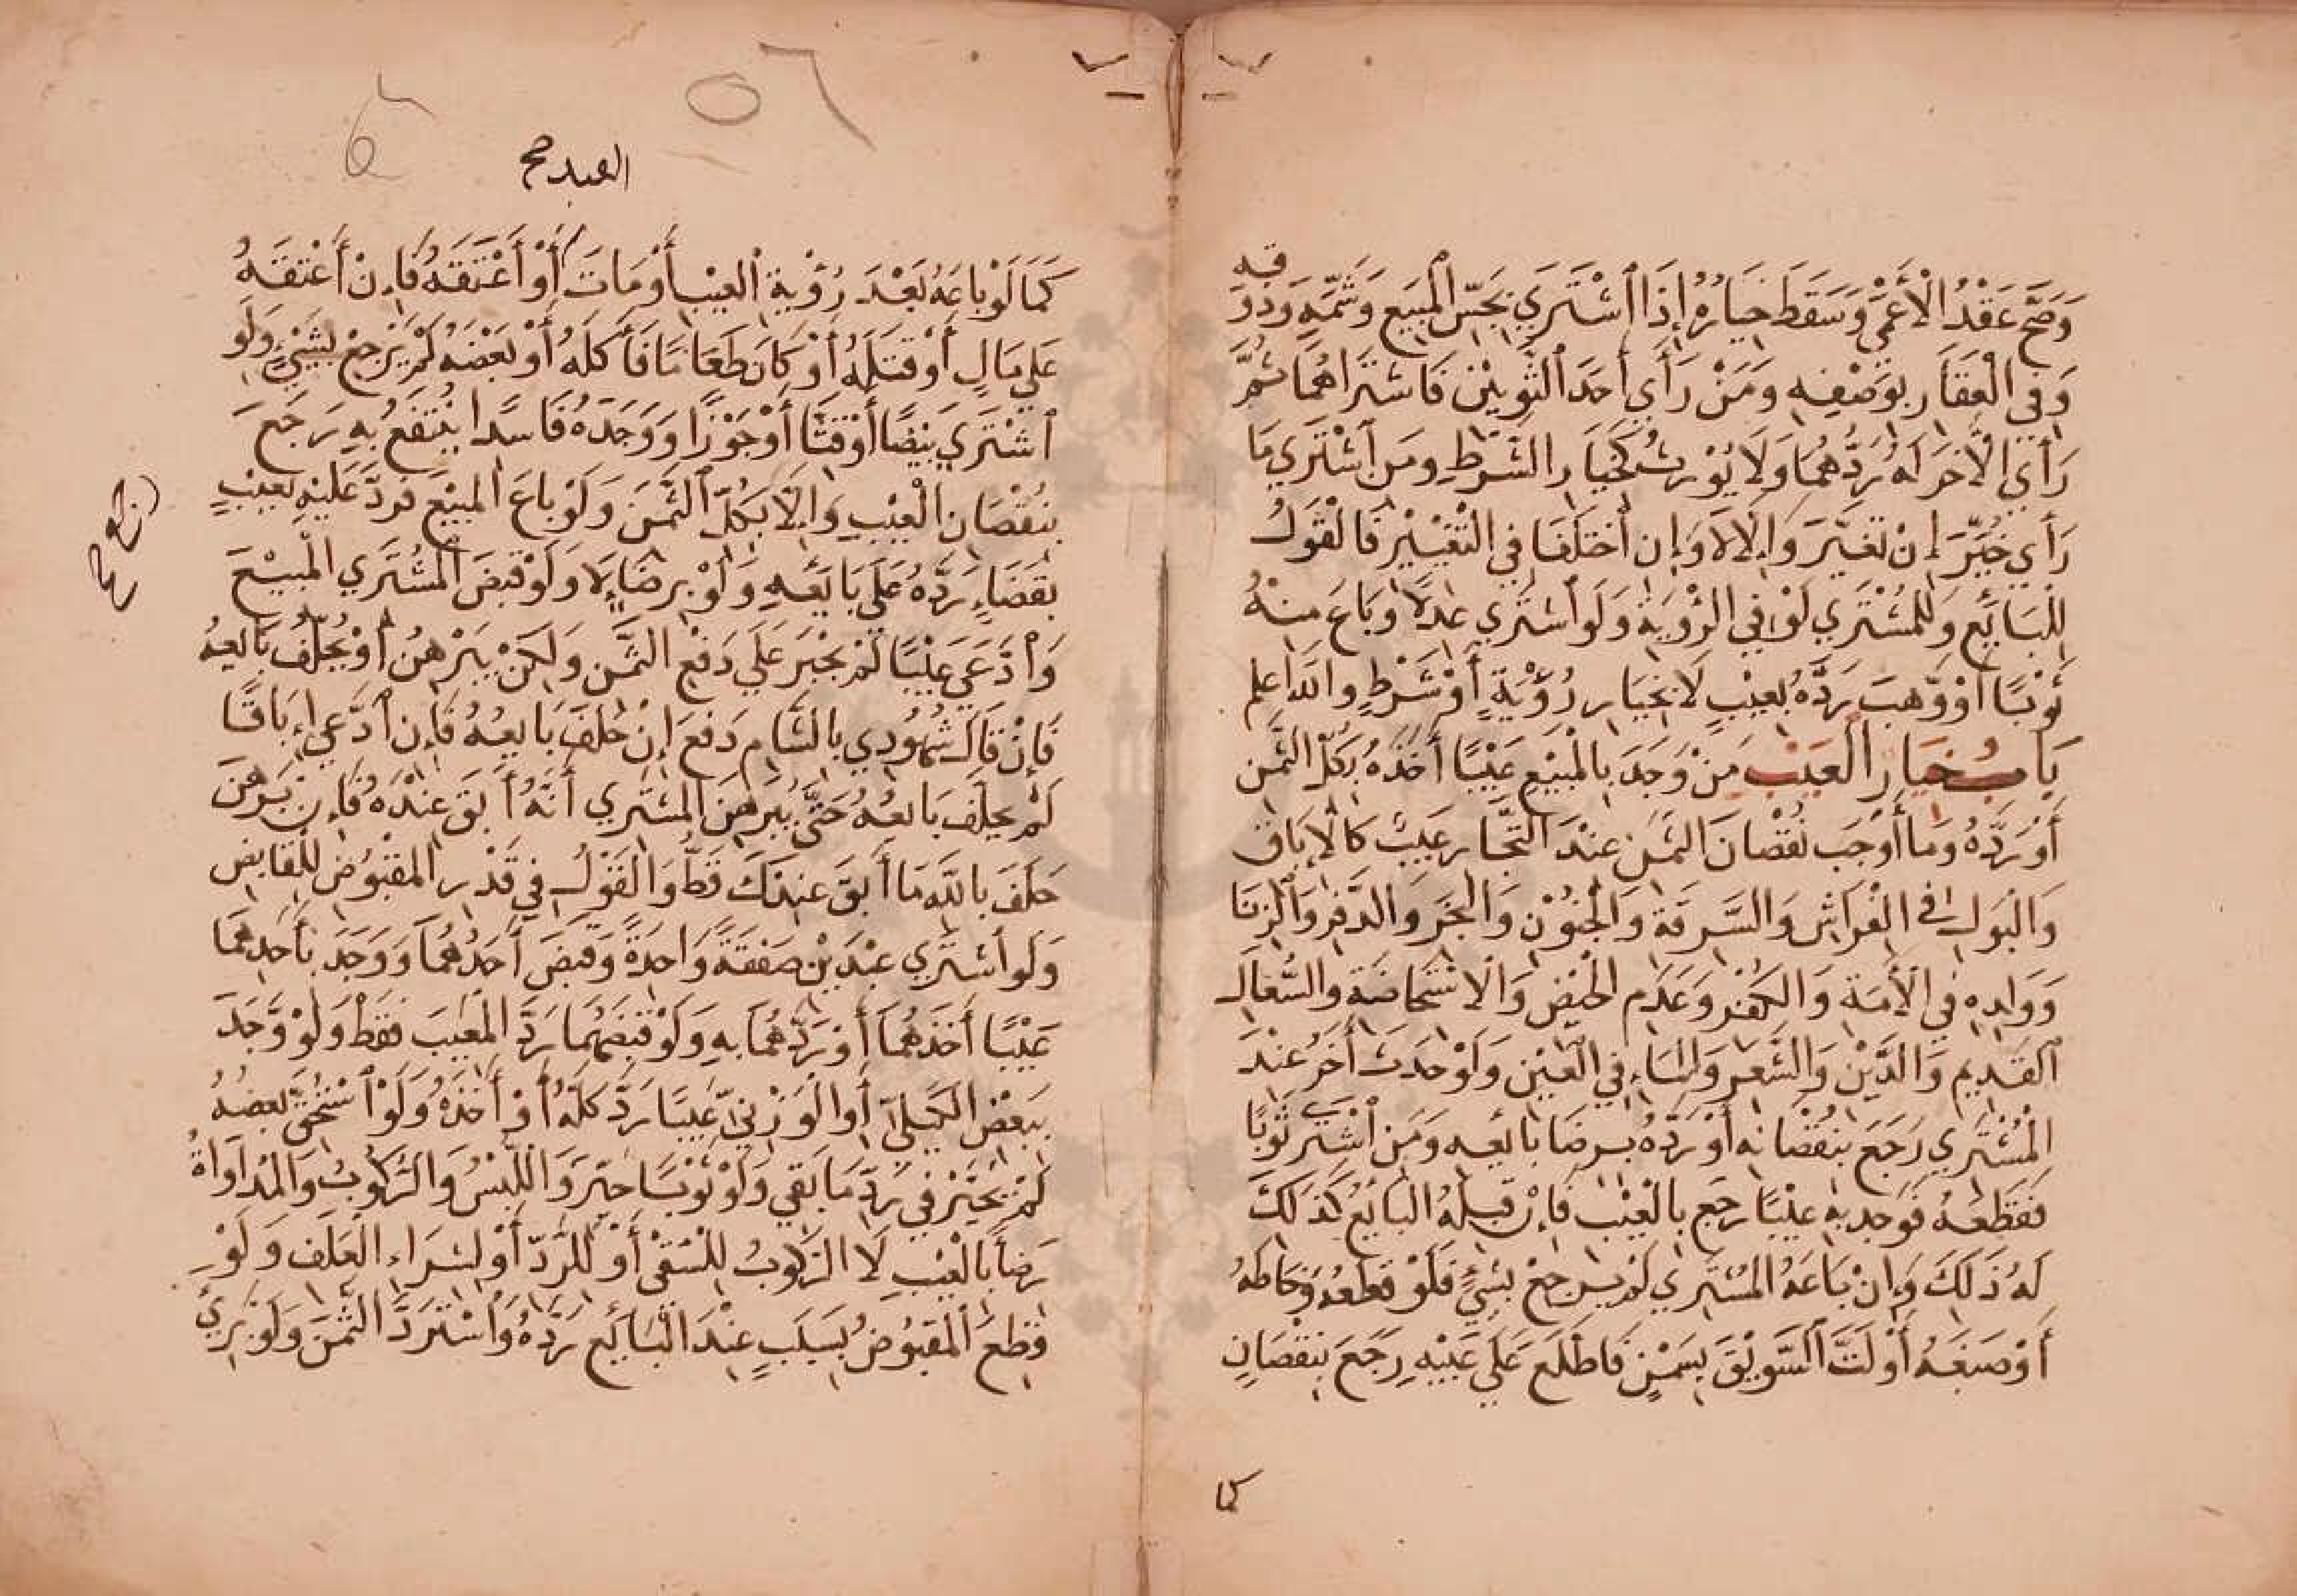 وَصَحَّ عَقْدُ الْأَعْمَي وَسَقَطَ خِيَارُهُ إِذَا اشْتَرَي بِجَسِّ الْمَبِيعِ وَشَمِّهِ وَذَوْقِهِ
وَفِي الْعَقَارِ بِوَصْفِهِ وَمَنْ رَأَي أَحَدَ الثَّوْبَيْنِ فَاشْتَرَاهُمَا ثُمَّ
رَأَي الْآخَرَ لَهُ رَدُّهُمَا وَلَا يُوْرَثُ كَخِيَارِ الشَّرْطِ وَمَنِ اشْتَرَي مَا
رَأَي خُيِّرَ إِنْ تَغَيَّرَ وَإِلَّا لَا وَإِنِ اخْتَلَفَا فِي التَّغْيِيْرِ فَالْقَوْلُ
لِلْبَايَعِ وَلِلْمُشْتَرِي لَوْ فِي الرُّؤْيَةِ وَلَوِ اشْتَرَي عِدْلًا وَبَاعَ مِنْهُ
ثَوْبًا أَوْ وَهَبَ رَدَّهُ بِعَيْبٍ لَا بِخِيَارِ رُؤْيَةٍ أَوْ شَرْطٍ والله اعلم
بَابُ خِيَارِ الْعَيْبِ مَنْ وَجَدَ بِالْمَبِيْعِ عَيْبًا أَخَذَهُ بِكُلِّ الثَّمَنِ
أَوْ رَدَّهُ وَمَا أَوْجَبَ نُقْصَانَ الثَّمَنِ عِنْدَ التُّجَّارِ عَيْبٌ كَالْإِبَاقِ
وَالْبَوْلِ فِي الْفِرَاشِ وَالسَّرِقَةِ وَالْجُنُوْنِ وَالْبَخَرِ وَالدَّفَرِ وَالزِّنَا
وَوَلَدِهِ فِي الْأَمَةِ وَالْكُفْرِ وَعَدَمِ الْحَيْضِ وَالْاسْتِحَاضَةِ وَالسُّعَالِ
الْقَدِيمِ وَالدَّيْنِ وَالشَّعَرِ وَالْمَاءِ فِي الْعَيْنِ وَلَوْ حَدَثَ أَخَرُ عِنْدَ
الْمُشْتَرِي رَجَعَ بِنُقْصَانِهِ أَوْ رَدَّهُ بِرِضَا بَائِعِهِ وَمَنِ اشْتَرَي ثَوْبًا
فَقَطَعَهُ فَوَجَدَ بِهِ عَيْبًا رَجَعَ بِالْعَيْبِ فَإِنْ قَبِلَهُ الْبَائِعُ كَذَلِكَ
لَهُ ذَلِكَ وَإِنْ بَاعَهُ الْمُشْتَرِي لَمْ يَرْجِعْ بِشَيْءٍ فَلَوْ قَطَعَهُ وَخَاطَهُ
أَوْ صَبَغَهُ أَوْ لَتَّ السَّوِيْقَ بِسَمْنٍ فَاطَّلَعَ عَلَي عَيْبِهِ رَجَعَ بِنُقْصَانٍ
كما
العبد صح
كَمَا لَوْ بَاعَهُ بَعْدَ رُؤْيَةِ الْعَيْبِ أَوْ مَاتَ أَوْ أَعْتَقَهُ فَإِنْ أَعْتَقَهُ
عَلَي مَالٍ أَوْ قَتَلَهُ أَوْ كَانَ طَعَامًا فَأَكَلَهُ أَوْ بَعْضَهُ لَمْ يَرْجِعْ بِشَيْءٍ وَلَوِ
اشْتَرَي بَيْضًا أَوْ قِثَّا أَوْ جَوْزًا وَوَجَدَهُ فَاسِدًا يُنْتَفَعُ بِهِ رَجَعَ
بِنُقْصَانِ الْعَيْبِ وَإِلَّا بِكُلِّ الثَّمَنِ وَلَوْ بَاعَ الْمَبِيْعَ فَرُدَّ عَلَيْهِ بِعَيْبٍ
بِقَضَاءٍ رَدَّهُ عَلَي بَايَعِهِ وَلَوْ بِرِضَاءٍ لَا وَلَوْ قَبَضَ الْمُشْتَرِي الْمَبِيْعَ
وَادَّعَي عَيْبًا لَمْ يُجْبَرْ عَلَي دَفْعِ الثَّمَنِ وَلَكِنْ يُبَرْهِنُ أَوْ يُحَلِّفُ بَايِعَهُ
فَإِنْ قَالَ شُهُوْدِي بِالشَّامِ دَفَعَ إِنْ حَلَفَ بَايِعُهُ فَإِنِ ادَّعَي إِبَاقًا
لَمْ يُحَلَّفْ بَائِعُهُ حَتَّي يُبَرْهِنَ الْمُشْتَرِي أَنَّهُ أَبَقَ عِنْدَهُ فَإِنْ بَرْهَنَ
حَلَفَ بِاللَّهِ مَا أَبَقَ عِنْدَكَ قَطُّ وَالْقَوْلُ فِي قَدْرِ الْمَقْبُوْضِ لِلْقَابِضِ
وَلَوِ اشْتَرَي عَبْدَيْنِ صَفْقَةً وَاحِدَةً وَقَبَضَ أَحَدَهُمَا وَوَجَدَ بِأَحَدِهِمَا
عَيْبًا أَخَذَهُمَا أَوْ رَدَّهُمَا بِهِ وَلَوْ قَبَضَهُمَا رَدَّ الْمَعِيبَ فَقَطْ وَلَوْ وَجَدَ
بِبَعْضِ الْكَيْلِيِّ أَوِ الْوَزْنِيِّ عَيْبًا رَدَّ كُلَّهُ أَوْ أَخَذَهُ وَلَوِ اسْتُحِقَّ بَعْضُهُ
لَمْ يُخَيَّرْ فِي رَدِّ مَا بَقِي وَلَوْ ثَوْبًا خُيِّرَ وَاللُّبْسُ وَالرُّكُوْبُ وَالْمُدَاوَاةُ
رِضًا بِالْعَيْبِ لَا الرُّكُوْبُ لِلسَّقْيِ أَوْ لِلرَّدِّ أَوْ لِشِرَاءِ الْعَلَفِ وَلَوْ
قُطِعَ الْمَقْبُوْضُ بِسَبَبٍ عِنْدَ الْبَايَعِ رَدَّهُ وَاسْتَرَدَّ الثَّمَنَ وَلَوْ بَرِيَ